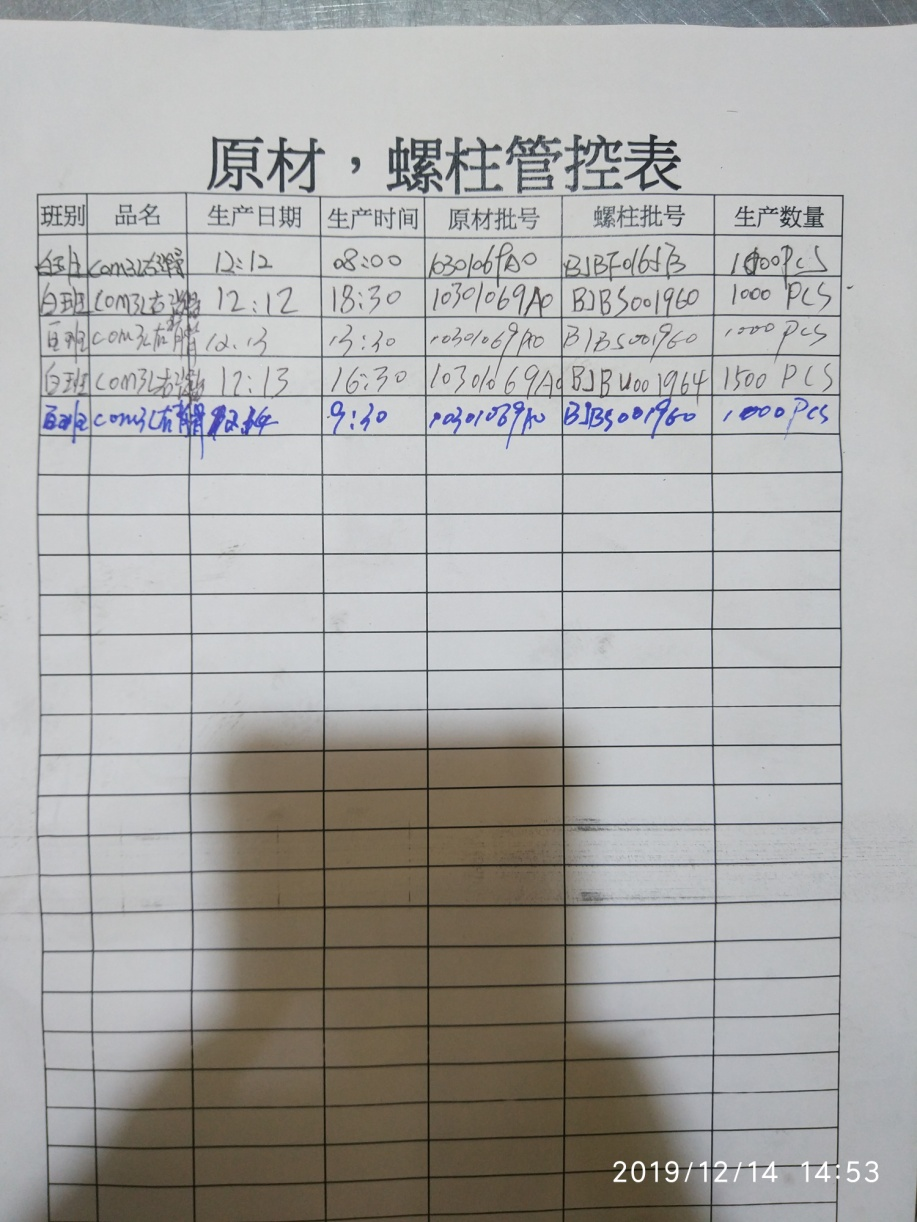 原材，螺柱管控表
班别 品名 生产日期 生产时间 原材批号 螺柱批号 生产数量
白班 COM3L右 12:12 08:00 10301069A0 1000PCS
白班 COM3L右 12:12 18:30 10301069A0 BJBS001960 1000 PCS
白班 COM3L右 12.13 13:30 10301069A0 BJBS001960 1000 PCS
白班 COM3L右 12:13 16:30 10301069A0 BJBU001964 1500 PCS
白班 COM3L右 9:30 10301039A0 BJBS001960 1000PCS
2019/12/14 14:53